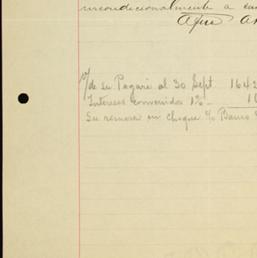 incondicionalmente a su
Afmo
de su Pagaré al 30 Sept 164
Intereses convenidos 1% 1
Su remesa en cheque c/ Banco